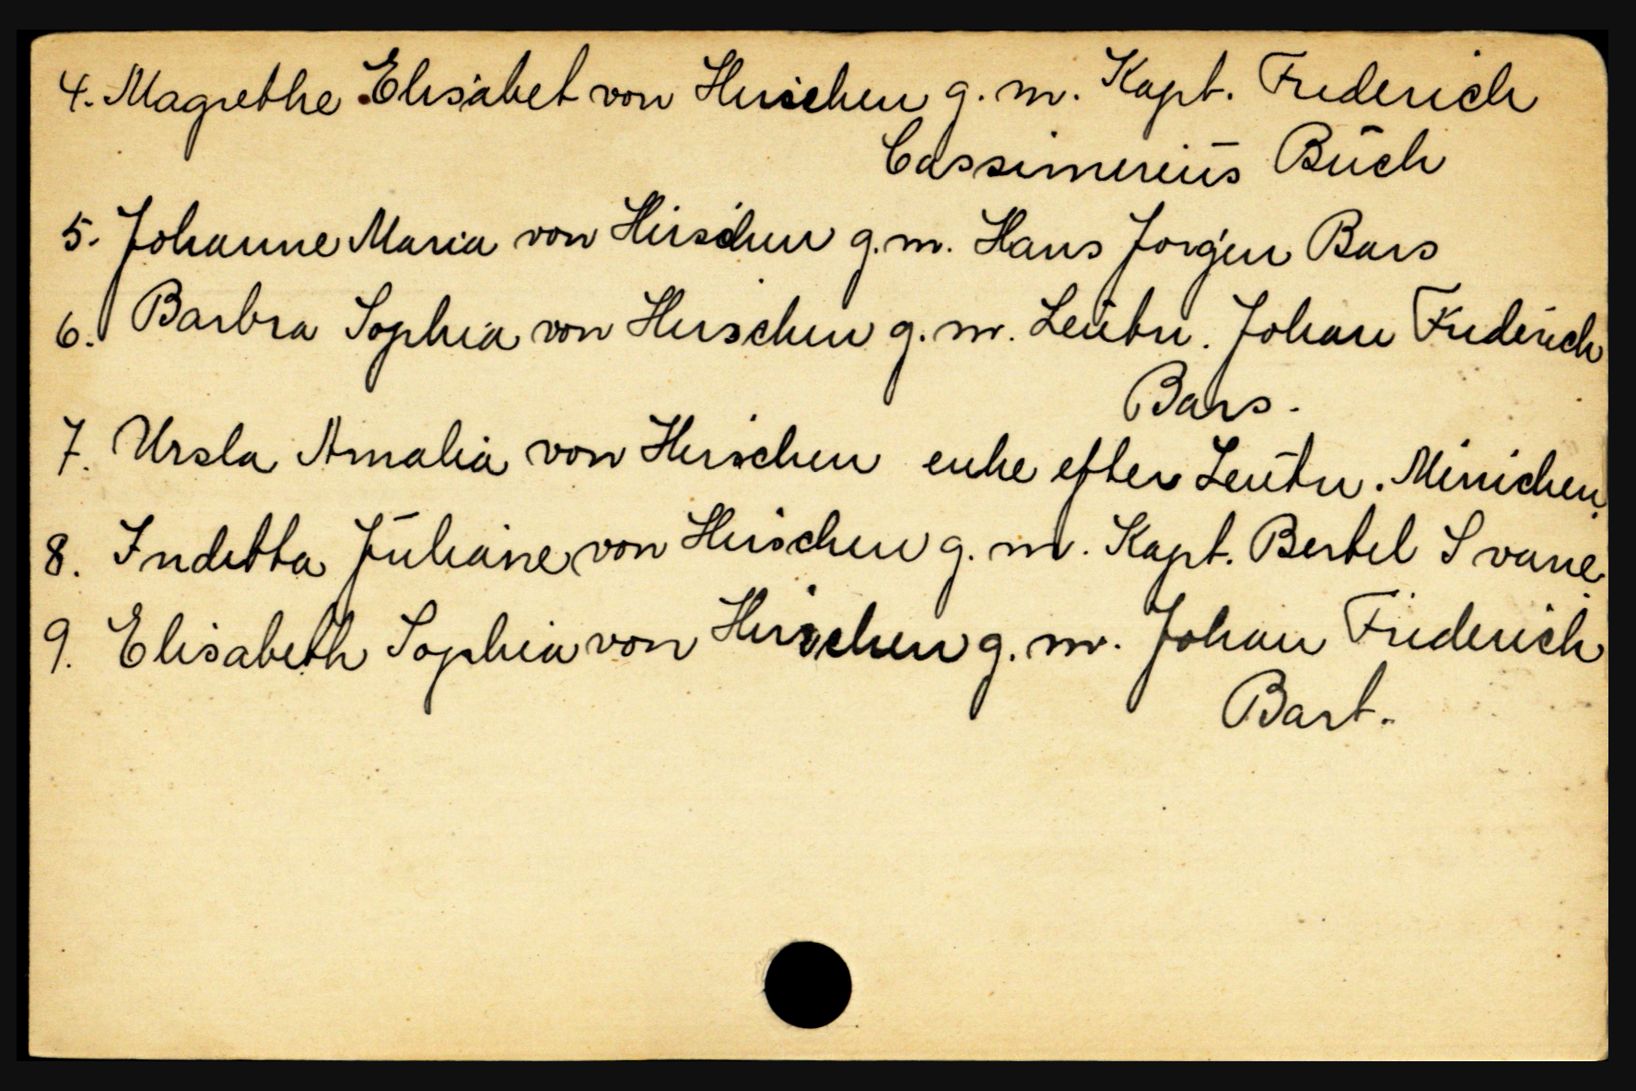 4. Magrethe Elisabet von Hirschen g.m. Kapt. Friderich
Cassimerius Büch
5. Johanne Maria von Hirschen g.m. Hans Jorgen Bars
6. Barbra Sophia von Hirschen g.m. Leutn. Johan Friderich
Bars.
7. Ursla Amalia von Hirschen enke efter Leutn. Minichen.
8. Indetta Juliane von Hirschen g.m. Kapt. Bertel Svane.
9. Elisabeth Sophia von Hirschen g.m. Johan Friderich
Bart.